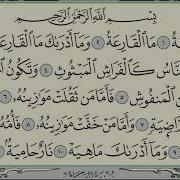 بِسْمِ ٱللَّهِ ٱلرَّحْمَٰنِ ٱلرَّحِيمِ
ةُ ١ مَا ٱلْقَارِعَةُ ٢ وَمَآ أَدْرَىٰكَ مَا ٱلْقَارِعَ
نَّاسُ كَٱلْفَرَاشِ ٱلْمَبْثُوثِ ٤ وَتَكُونُ ٱ
ٱلْمَنفُوشِ ٥ فَأَمَّا مَن ثَقُلَتْ مَوَٰزِينُهُۥ ٦
رَّاضِيَةٍ ٧ وَأَمَّا مَنْ خَفَّتْ مَوَٰزِينُهُۥ ٨ فَأُمُّهُۥ
٩ وَمَآ أَدْرَىٰكَ مَا هِيَهْ ١٠ نَارٌ حَامِيَةٌۢ